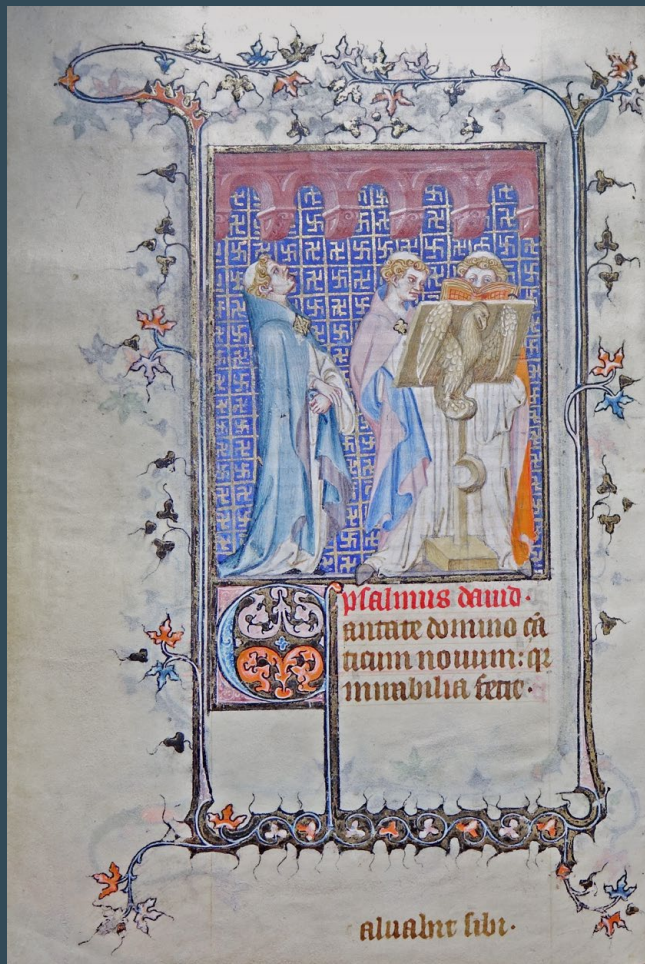 psalmus dauid.
Cantate domino cā
ticum nouum: qr
mirabilia fecit.
aluabit sibi.